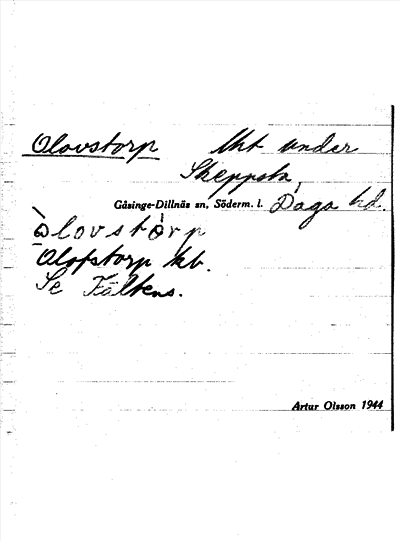 Olovstorp Utt under
Skeppsta,
Gåsinge-Dillnäs sn, Söderm. l. Daga hd.
òlovstòrp
Olofstorp kb.
Se Fältens.
Artur Olsson 1944